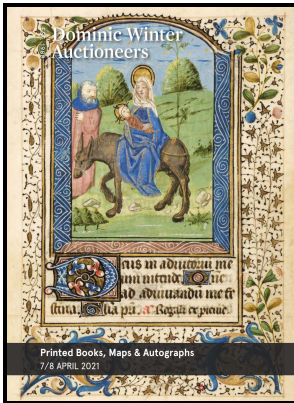 Dominic Winter
Auctioneers
eus in adiutoriu me
um intende.
ad adiuvandu me fe
stina.
Printed Books, Maps & Autographs
7/8 APRIL 2021